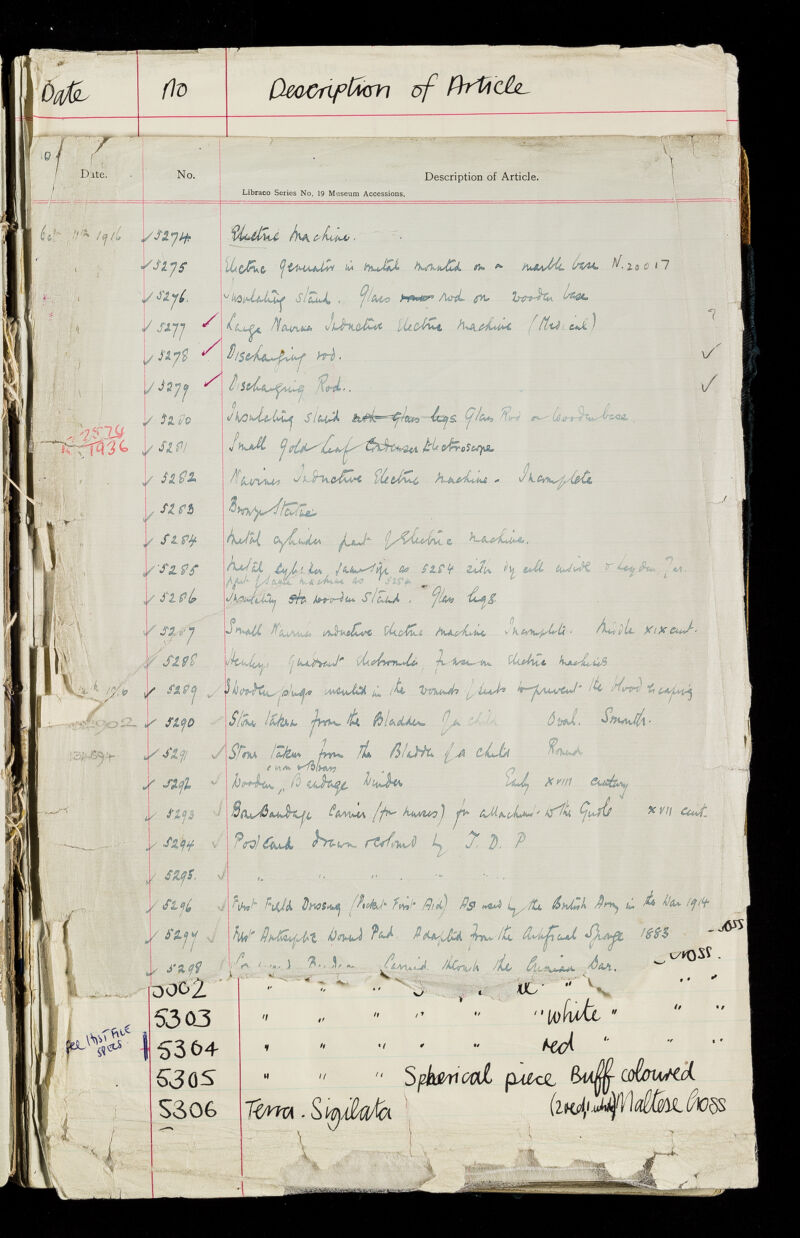 Date No Description of Article
Date. No. Description of Article.
Libraco Series No. 19 Museum Accessions.
Oct 11th 1916 ✓ 5274 Electric Machine.
✓ 5275 Electric Generator in metal mounted on a marble base N.20017
✓ 5276. Insulating stand. Glass rod on wooden base
✓ 5277 ✓ Large Nairne Inductive Electric Machine (Medical) ?
✓ 5278 ✓ Discharging rod. ✓
✓ 5279 ✓ Discharging Rod.. ✓
✓ 5280 Insulating stand with glass legs Glass Rod on Wooden base.
2574
1936
✓ 5281 Small Gold Leaf Condenser Electroscope
✓ 5282 Nairnes Inductive Electric Machine - Incomplete
✓ 5283 Bronze Statue
✓ 5284 Metal cylinder part of Electric Machine.
✓ 5285 Metal cylinder same size as 5284 inside Leyden Jar.
part of same machine as 5284
✓ 5286 Insulating sta wooden stand. Glass legs.
✓ 5287 Small Nairne inductive electric machine Incomplete. Middle XIX cent.
5288 Henleys Quadrant electrometer, for use on electric machines
1916 ✓ 5289 ✓ 3 Wooden plugs inserted in the wounds to prevent the blood escaping
✓ 5290 ✓ Stone taken from the Bladder of a child Oval. Smooth.
✓ 5291 ✓ Stone taken from the Bladder of a child Round
iron & Brass
✓ 5292 ✓ Wooden, Bandage Winder Early XVIII century
✓ 5293 ✓ Bandage Carrier (for nurses) for attachment to the Girdle XVII cent.
✓ 5294 ✓ Post Card drawn & coloured by T. D. P
✓ 5295. ✓ " " " " "
✓ 5296 ✓ First Field Dressing (Pocket First Aid) As used by the British Army in the War 1914
✓ 5297 ✓ First Antiseptic Wound Pad. Adapted from the Artificial Sponge 1883
✓ 5298 Carried through the Crimean War.
5302 " " " "
5303 " " " " " " white " " "
See Hist File
specs
5304 " " " " " red " " "
5305 " " " Spherical piece Buff coloured
5306 Terra. Sigilata (2 red, 1 white) Maltese Cross